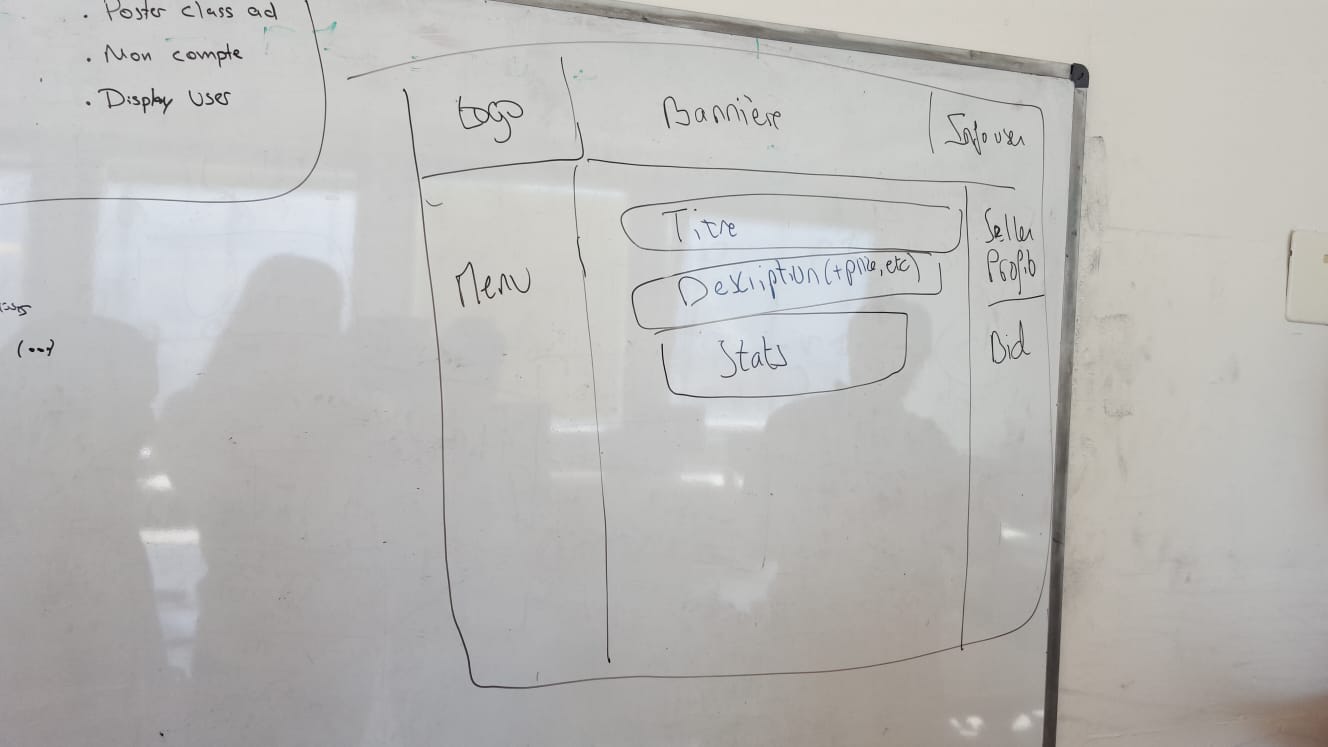 . Poster class ad
. Mon compte
. Display User
(...)
Logo
Bannière
Info user
Menu
Titre
Description (+prize, etc)
Stats
Seller
Profit
Bid